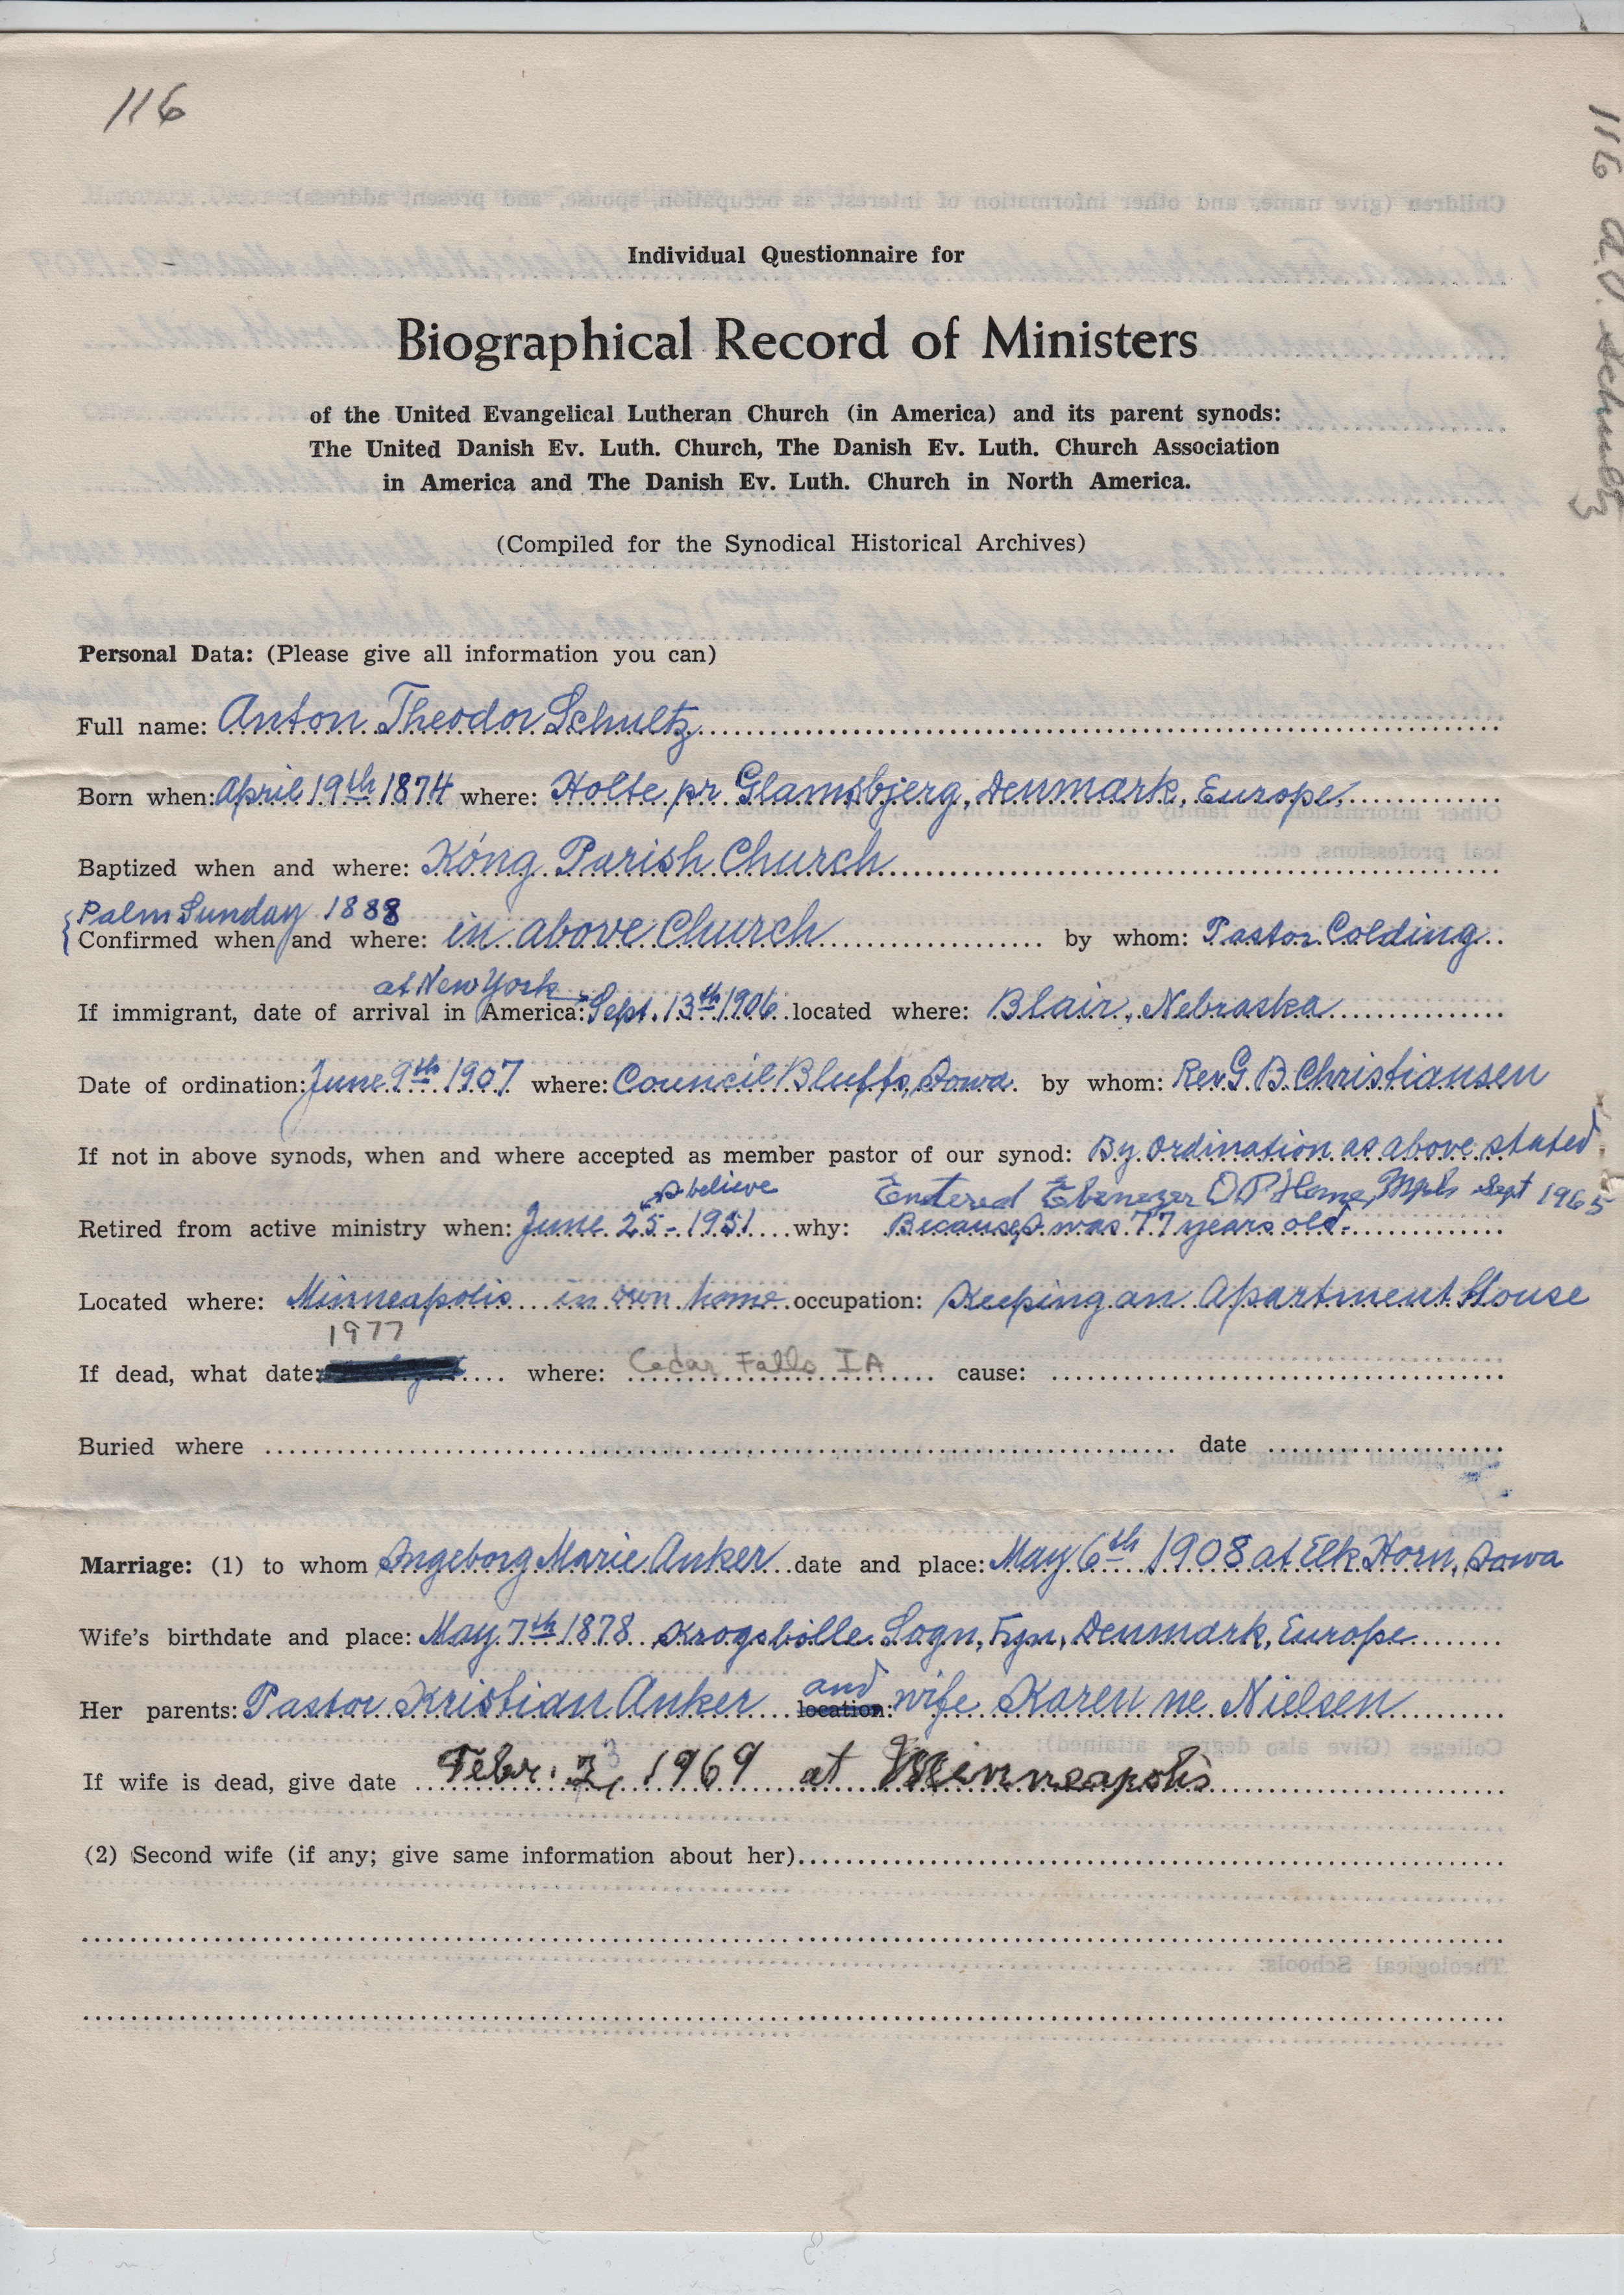 116
116 A.T. Schultz
Individual Questionnaire for
Biographical Record of Ministers
of the United Evangelical Lutheran Church (in America) and its parent synods:
The United Danish Ev. Luth. Church, The Danish Ev. Luth. Church Association
in America and The Danish Ev. Luth. Church in North America.
(Compiled for the Synodical Historical Archives)
Personal Data: (Please give all information you can)
Full name: Anton Theodor Schultz
Born when: April 19th 1874 where: Holte pr Glamsbjerg, Denmark, Europe.
Baptized when and where: Kóng Parish Church
Palm Sunday 1888
Confirmed when and where: in above Church by whom: Pastor Colding
at New York
If immigrant, date of arrival in America: Sept. 13th 1906 located where: Blair, Nebraska
Date of ordination: June 9th 1907 where: Council Bluffs, Iowa. by whom: Rev G. B. Christiansen
If not in above synods, when and where accepted as member pastor of our synod: By Ordination as above stated
I believe Entered Ebenezer O P Home, Mpls Sept 1965
Retired from active ministry when: June 25 - 1951 why: Because I was 77 years old.
Located where: Minneapolis in own home occupation: Keeping an Apartment House
1977
If dead, what date: where: Cedar Falls IA cause:
Buried where date
Marriage: (1) to whom Ingeborg Marie Anker date and place: May 6th 1908 at Elk Horn, Iowa
Wife's birthdate and place: May 7th 1878 Krogsbölle Sogn, Fyn, Denmark, Europe
and
Her parents: Pastor Kristian Anker location: wife Karen ne Nielsen
If wife is dead, give date Febr. 3, 1969 at Minneapolis
(2) Second wife (if any; give same information about her)